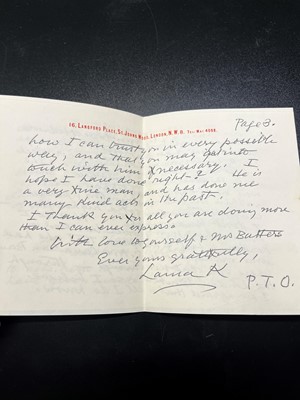 Page 3.
16, Langford Place, St. Johns Wood, London, N.W.8.
how I can trust you in every possible
way, and that you may get into
touch with him if necessary. I
hope I have done right? He is
a very fine man and has done me
many kind acts in the past.
I thank you for all you are doing more
than I can ever express
With love to yourself & Mr Butters
Ever yours gratefully,
Laura K
P.T.O.